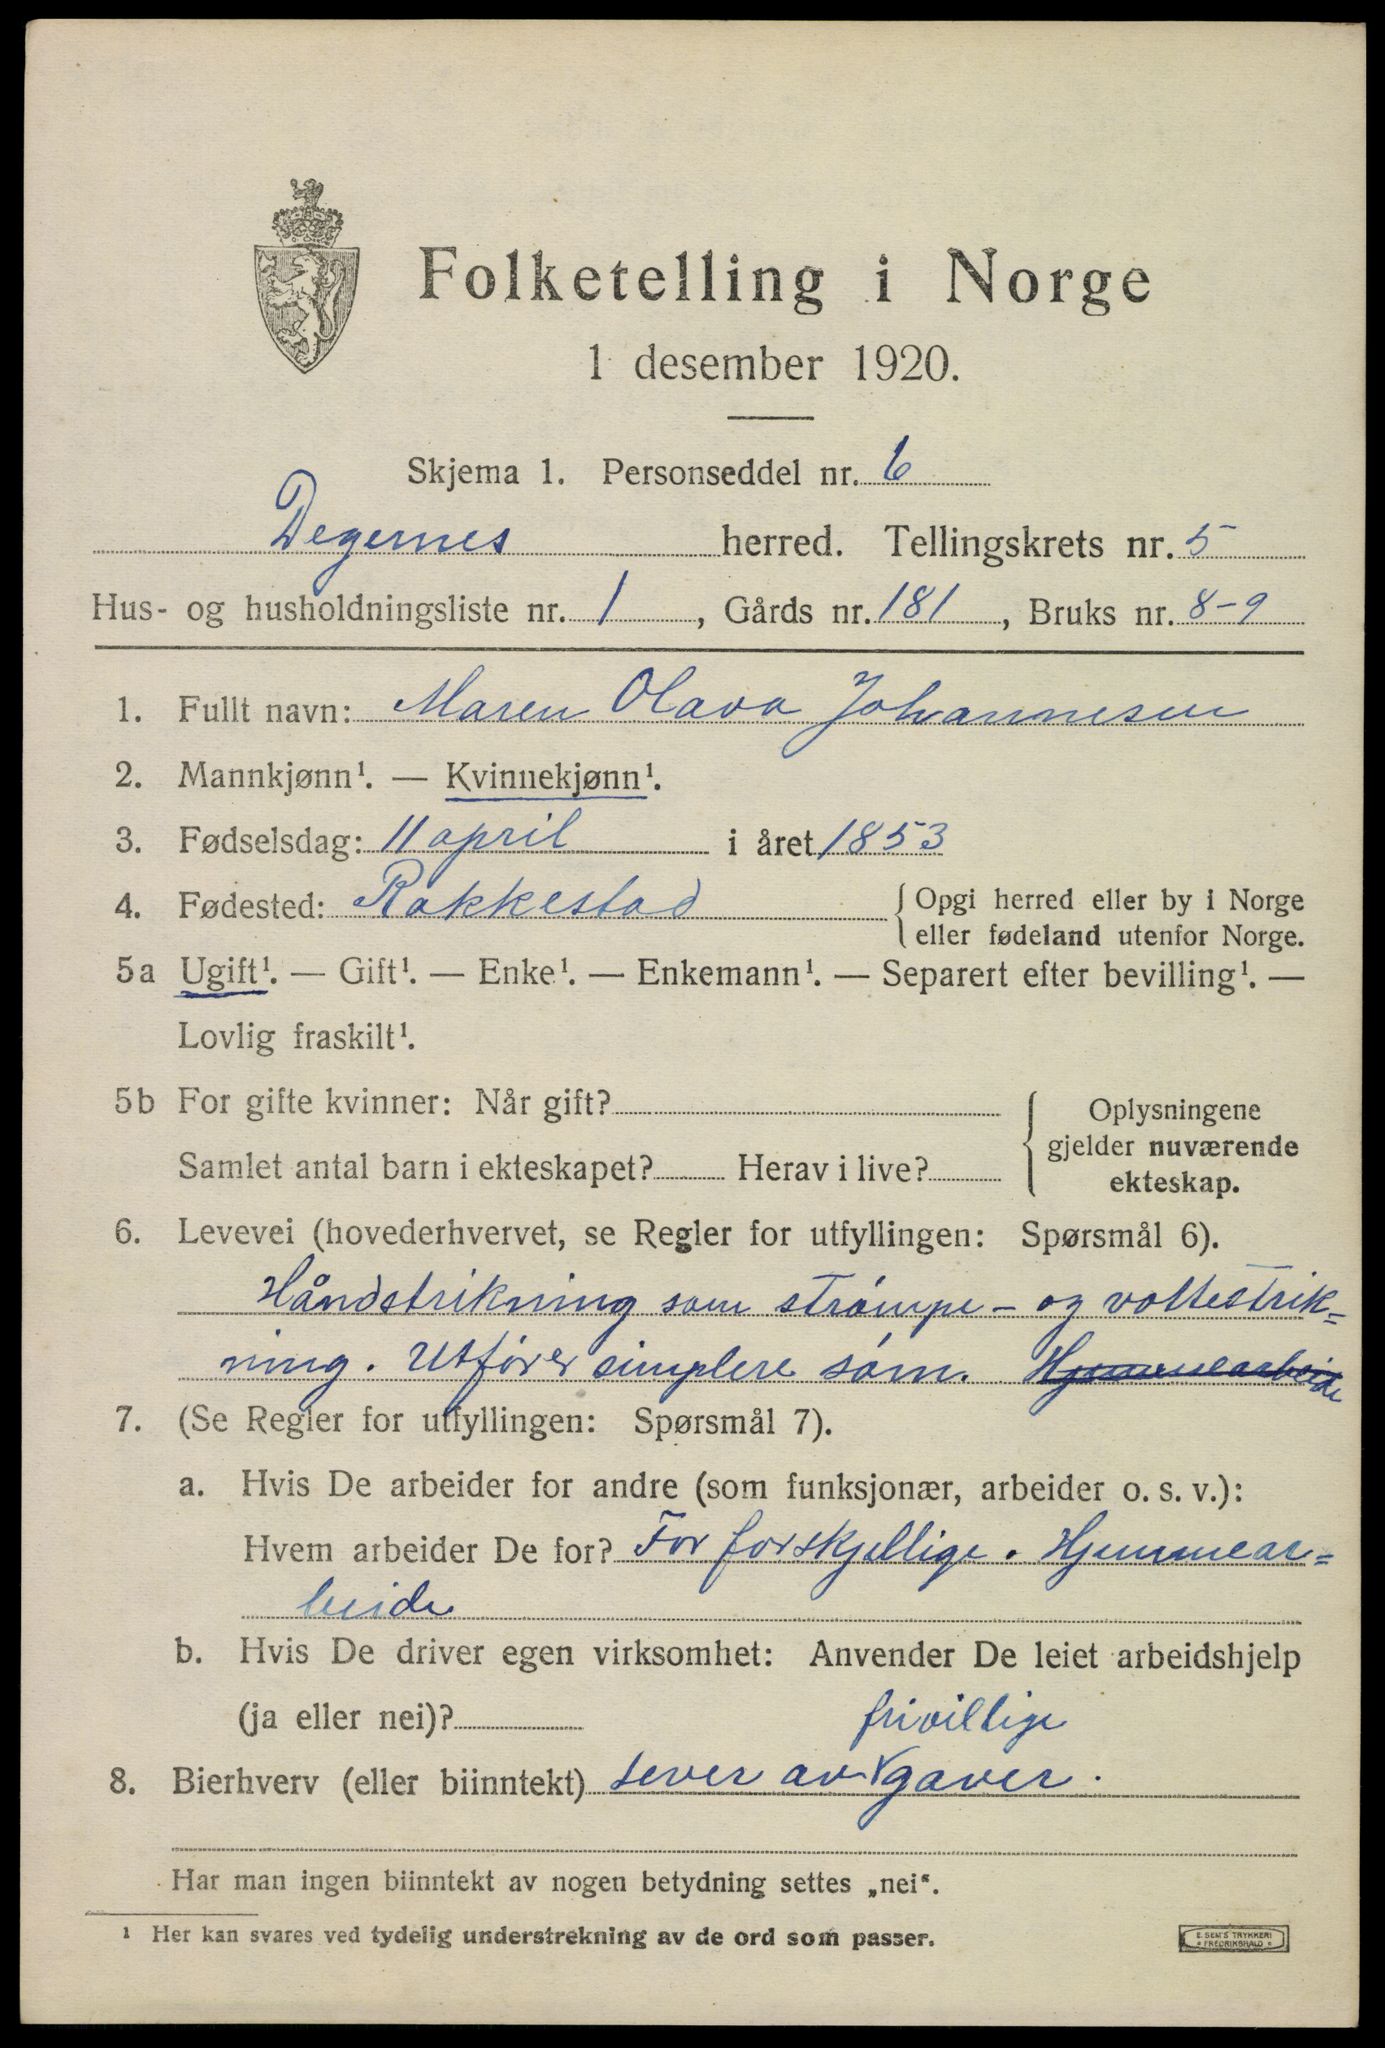 Folketelling i Norge
1 desember 1920.
Skjema 1. Personseddel nr. 6
Degernes herred. Tellingskrets nr. 5
Hus- og husholdningsliste nr. 1, Gårds nr. 181, Bruks nr. 8-9
1. Fullt navn: Maren Olava Johannesen
2. Mannkjønn¹. — Kvinnekjønn¹.
3. Fødselsdag: 11 april i året 1853
4. Fødested: Rakkestad { Opgi herred eller by i Norge
eller fødeland utenfor Norge.
5a Ugift¹. — Gift¹. — Enke¹. — Enkemann¹. — Separert efter bevilling¹. —
Lovlig fraskilt¹.
5b For gifte kvinner: Når gift? { Oplysningene
gjelder nuværende
Samlet antal barn i ekteskapet? Herav i live? ekteskap.
6. Levevei (hovederhvervet, se Regler for utfyllingen: Spørsmål 6).
Håndstrikning som strømpe- og vottestrik-
ning. Utfører simplere søm. Hjemmearbeide
7. (Se Regler for utfyllingen: Spørsmål 7).
a. Hvis De arbeider for andre (som funksjonær, arbeider o. s. v.):
Hvem arbeider De for? For forskjellige. Hjemmear-
beide
b. Hvis De driver egen virksomhet: Anvender De leiet arbeidshjelp
(ja eller nei)?
frivillige
8. Bierhverv (eller biinntekt) Lever av gaver.
Har man ingen biinntekt av nogen betydning settes „nei“.
¹ Her kan svares ved tydelig understrekning av de ord som passer.
E. SEM'S TRYKKERI
FREDRIKSHALD